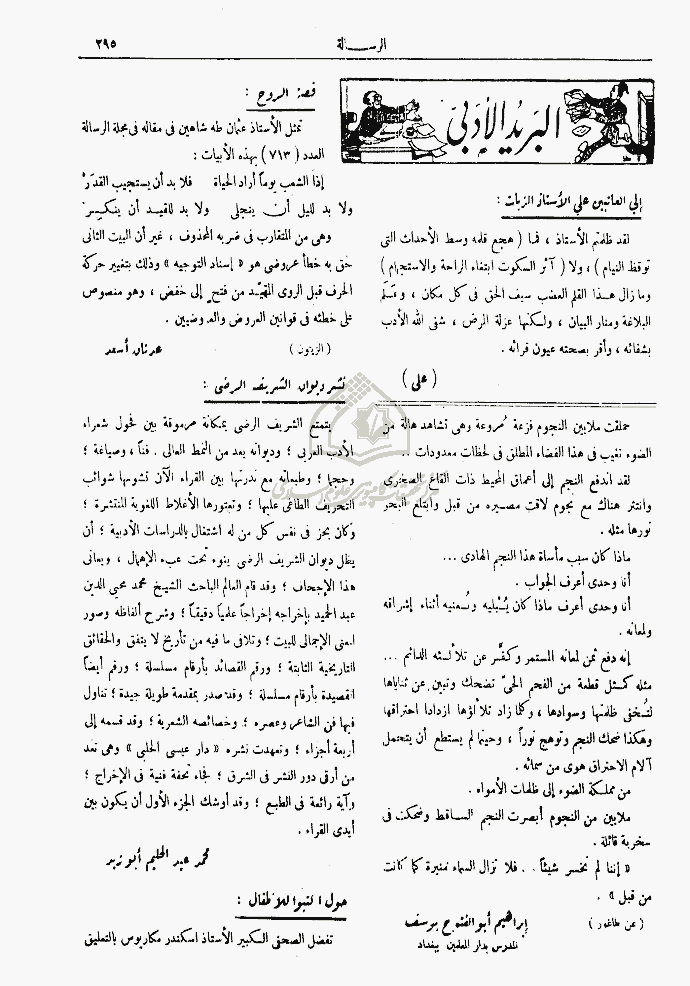 الرسالة
٢٩٥
البريد الأدبي
إلى العاتبين على الأستاذ الزيات :
لقد ظلمتم الأستاذ ، فما ( هجع قلمه وسط الأحداث التي
توقظ النيام ) ، ولا ( آثر السكوت ابتغاء الراحة والاستجمام )
وما زال هذا القلم العضب سيف الحق في كل مكان ، وعَلَم
البلاغة ومنار البيان ، ولكنها عزلة المرض ، شفى الله الأدب
بشفائه ، وأقر بصحته عيون قرائه .
( علي )
حملقت ملايين النجوم فزعة مُروعة وهي تشاهد هالة من
الضوء تغيب في هذا الفضاء المطلق في لحظات معدودات ..
لقد اندفع النجم إلى أعماق المحيط ذات القاع الصخري
وانتثر هناك مع نجوم لاقت مصيره من قبل وابتلع البحر
نورها مثله .
ماذا كان سبب مأساة هذا النجم الهادي ...
أنا وحدي أعرف الجواب .
أنا وحدي أعرف ماذا كان يُبْليه ويُضنيه أثناء إشراقه
ولمعانه .
إنه دفع ثمن لمعانه المستمر وكفَّر عن تلألئه الدائم ...
مثله كمثل قطعة من الفحم الحيّ تضحك وتبين عن ثناياها
لتُخفي ظلمتها وسوادها ، وكلما زاد تلألؤها ازدادا احتراقها
وهكذا ضحك النجم وتوهج نوراً ، وحينما لم يستطع أن يتحمل
آلام الاحتراق هوى من سمائه .
من مملكة الضوء إلى ظلمات الأمواه .
ملايين من النجوم أبصرت النجم الساقط وضحكت في
سخرية قائلة .
« إننا لم نخسر شيئاً . . فلا تزال السماء منيرة كما كانت
من قبل » .
( عن طاغور ) إبراهيم أبو الفتوح يوسف
المدرس بدار المعلمين ببغداد
قصة الروح :
تمثل الأستاذ عثمان طه شاهين في مقاله في مجلة الرسالة
العدد ( ٧١٣ ) بهذه الأبيات :
إذا الشعب يوماً أراد الحياة فلا بد أن يستجيب القدَر
ولا بد لليل أن ينجلي ولا بد للقيد أن ينكسر
وهي من المتقارب في ضربه المحذوف ، غير أن البيت الثاني
حق به خطأ عروضي هو « إسناد التوجيه » وذلك بتغيير حركة
الحرف قبل الروي المقيّد من فتح إلى خفض ، وهو منصوص
على خطئه في قوانين العروض والعروضيين .
( الزيتون ) عدنان أسعد
نشر ديوان الشريف الرضي :
يتمتع الشريف الرضي بمكانة مرموقة بين فحول شعراء
الأدب العربي ؛ وديوانه يعد من النمط العالي . فناً ، وصياغة ؛
وحجما ؛ وطبعاته مع ندرتها بين القراء الآن تشوبها شوائب
التحريف الطاغي عليها ؛ وتعتورها الأغلاط اللغوية المنتشرة ؛
وكان يحز في نفس كل من له اشتغال بالدراسات الأدبية ؛ أن
يظل ديوان الشريف الرضي ينوء تحت عبء الإهمال ، ويعاني
هذا الإجحاف ؛ وقد قام العالم الباحث الشيخ محمد محيي الدين
عبد الحميد بإخراجه إخراجاً علمياً دقيقاً ؛ وشرح ألفاظه وصور
المعنى الإجمالي للبيت ؛ وتلافى ما فيه من تأريخ لا يتفق والحقائق
التاريخية الثابتة ؛ ورقم القصائد بأرقام مسلسلة ؛ ورقم أيضاً
القصيدة بأرقام مسلسلة ؛ وقد صدر بمقدمة طويلة جيدة ؛ تناول
فيها فن الشاعر وعصره ؛ وخصائصه الشعرية ؛ وقد قسمه إلى
أربعة أجزاء ؛ وتعهدت نشره « دار عيسى الحلبي » وهي تعد
من أرقى دور النشر في الشرق ؛ فجاء تحفة فنية في الإخراج ؛
وآية رائعة في الطبع ؛ وقد أوشك الجزء الأول أن يكون بين
أيدي القراء .
محمد عبد الحليم أبو زيد
حول اكتبوا للأطفال :
تفضل الصحفي الكبير الأستاذ اسكندر مكاريوس بالتعليق